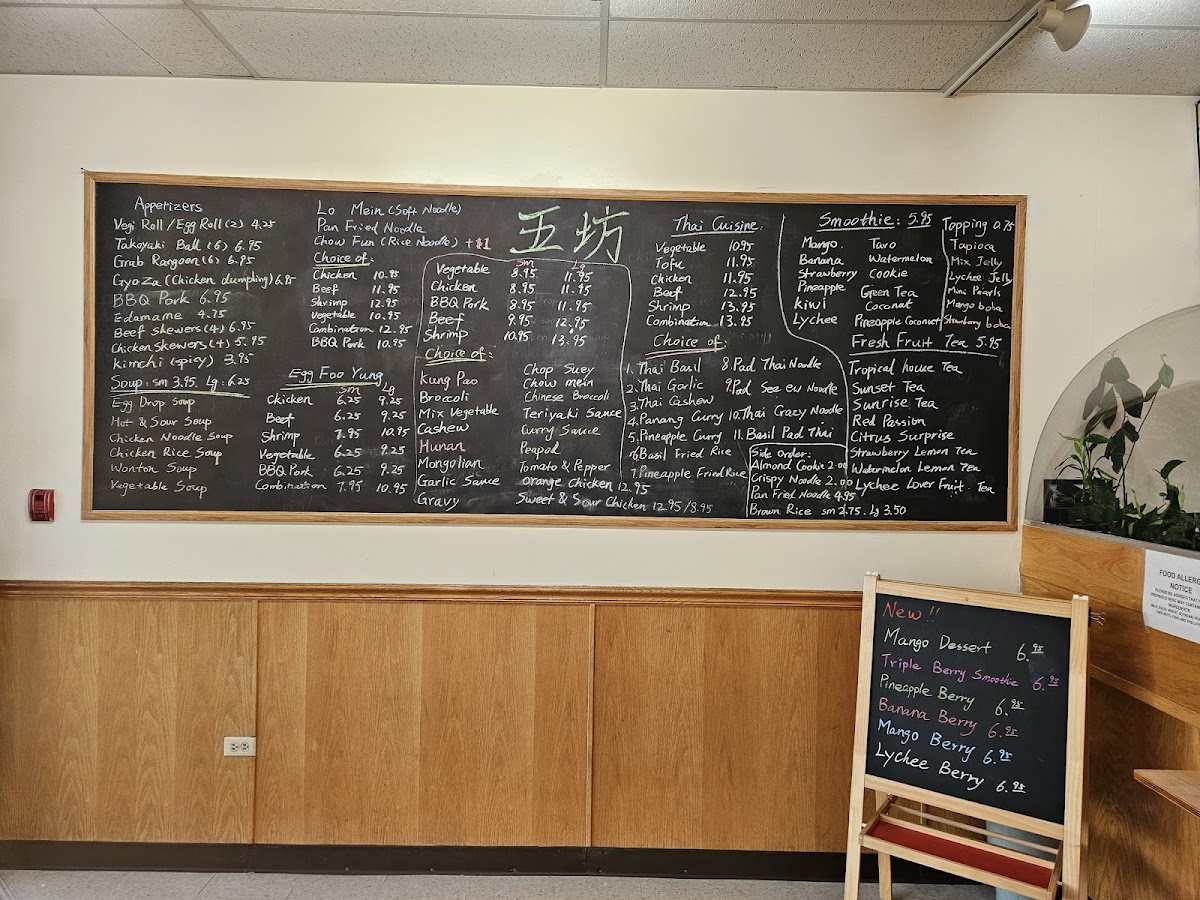 Appetizers
Vegi Roll / Egg Roll (2) 4.25
Takoyaki Ball (6) 6.95
Crab Rangoon (6) 6.95
Gyoza (Chicken dumpling) 6.95
BBQ Pork 6.95
Edamame 4.75
Beef Skewers (4) 6.95
Chicken Skewers (4) 5.95
Kimchi (spicy) 3.95
Soup: sm 3.95, Lg: 6.25
Egg Drop Soup
Hot & Sour Soup
Chicken Noodle Soup
Chicken Rice Soup
Wonton Soup
Vegetable Soup
Lo Mein (Soft Noodle)
Pan Fried Noodle
Chow Fun (Rice Noodle) +$1
Choice of:
Chicken 10.95
Beef 11.95
Shrimp 12.95
Vegetable 10.95
Combination 12.95
BBQ Pork 10.95
Egg Foo Yung
Sm Lg
Chicken 6.25 9.25
Beef 6.25 9.25
Shrimp 7.95 10.95
Vegetable 6.25 9.25
BBQ Pork 6.25 9.25
Combination 7.95 10.95
五坊
Sm Lg
Vegetable 8.95 11.95
Chicken 8.95 11.95
BBQ Pork 8.95 11.95
Beef 9.95 12.95
Shrimp 10.95 13.95
Choice of:
Kung Pao
Broccoli
Mix Vegetable
Cashew
Hunan
Mongolian
Garlic Sauce
Gravy
Chop Suey
Chow mein
Chinese Broccoli
Teriyaki Sauce
Curry Sauce
Peapod
Tomato & Pepper
Orange Chicken 12.95
Sweet & Sour Chicken 12.95 / 8.95
Thai Cuisine:
Vegetable 10.95
Tofu 11.95
Chicken 11.95
Beef 12.95
Shrimp 13.95
Combination 13.95
Choice of:
1. Thai Basil
2. Thai Garlic
3. Thai Cashew
4. Panang Curry
5. Pineapple Curry
6. Basil Fried Rice
7. Pineapple Fried Rice
8. Pad Thai Noodle
9. Pad See Eu Noodle
10. Thai Crazy Noodle
11. Basil Pad Thai
Side Order:
Almond Cookie 2.00
Crispy Noodle 2.00
Pan Fried Noodle 4.95
Brown Rice sm 2.75. Lg 3.50
Smoothie: 5.95
Mango
Banana
Strawberry
Pineapple
Kiwi
Lychee
Taro
Watermelon
Cookie
Green Tea
Coconut
Pineapple Coconut
Topping 0.75
Tapioca
Mix Jelly
Lychee Jelly
Mini Pearls
Mango boba
Strawberry boba
Fresh Fruit Tea 5.95
Tropical house Tea
Sunset Tea
Sunrise Tea
Red Passion
Citrus Surprise
Strawberry Lemon Tea
Watermelon Lemon Tea
Lychee Lover Fruit Tea
FOOD ALLERG
NOTICE
New!!
Mango Dessert 6.95
Triple Berry Smoothie 6.95
Pineapple Berry 6.95
Banana Berry 6.95
Mango Berry 6.95
Lychee Berry 6.95